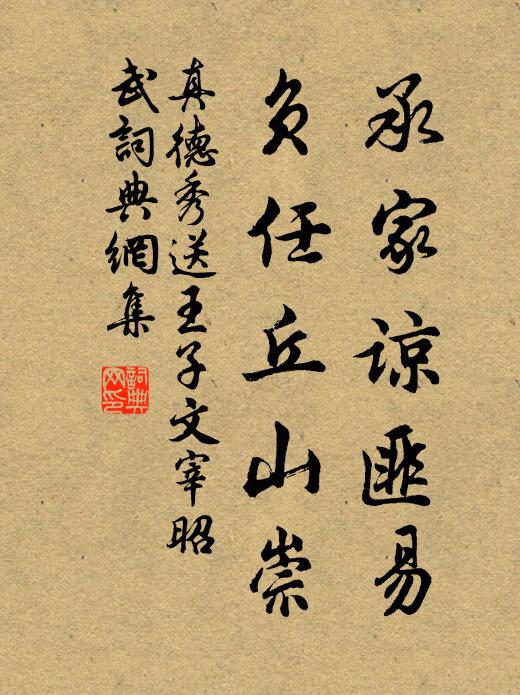 承家谅匪易
负任丘山崇
真德秀送王子文宰昭
武詞典網集
詞典網印